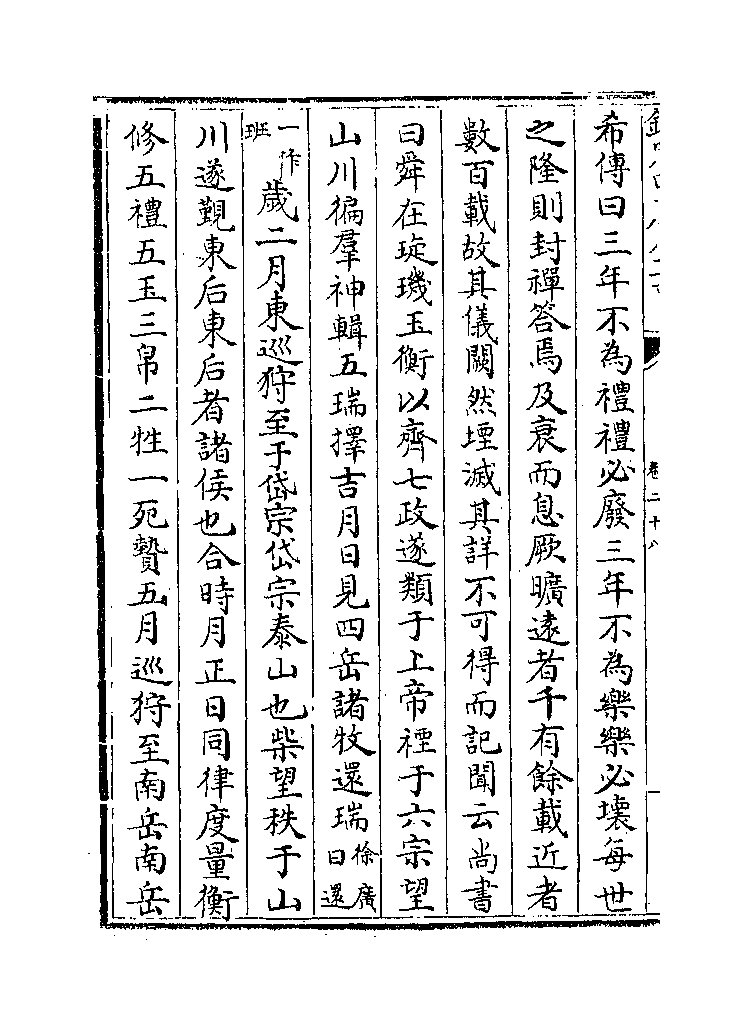 希傳曰三年不為禮禮必廢三年不為樂樂必壞每世
之隆則封禪答焉及衰而息厥曠遠者千有餘載近者
數百載故其儀闕然堙滅其詳不可得而記聞云尚書
曰舜在琁璣玉衡以齊七政遂類于上帝禋于六宗望
山川徧羣神輯五瑞擇吉月日見四岳諸牧還瑞徐廣曰還
一作班歲二月東巡狩至于岱宗岱宗泰山也柴望秩于山
川遂覲東后東后者諸侯也合時月正日同律度量衡
修五禮五玉三帛二牲一死贄五月巡狩至南岳南岳
卷二十八